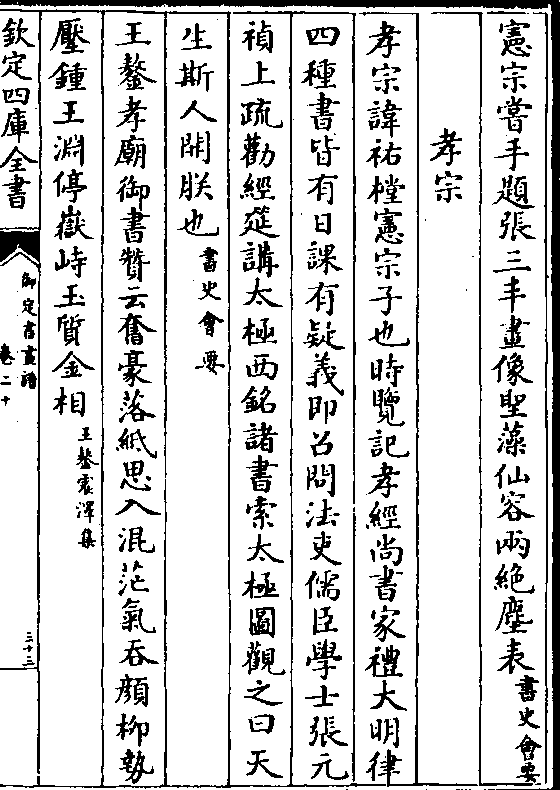 憲宗嘗手題張三丰畫像聖藻仙容兩絶塵表書史會要
孝宗
孝宗諱祐樘憲宗子也時覽記孝經尚書家禮大明律
四種書皆有日課有疑義即召問法吏儒臣學士張元
禎上疏勸經筵講太極西銘諸書索太極圖觀之曰天
生斯人開朕也書史會要
王鏊孝廟御書贊云奮豪落紙思入混茫氣吞顔柳勢
壓鍾王淵停嶽峙玉質金相王鏊震澤集
欽定四庫全書
御定書畫譜
卷二十
三十三